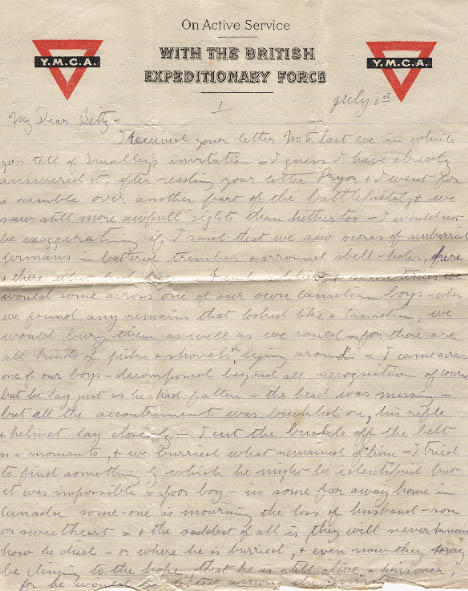 On Active Service
WITH THE BRITISH
EXPEDITIONARY FORCE
Y.M.C.A.
Y.M.C.A.
1
July 6th
My Dear Betty -
I received your letter No 6 last eve in which
you tell of Smalleys invitation - I guess I have already
answered it, after reading your letter Pryor & I went for
a ramble over another part of the battlefield, & we
saw still more awfull sights than hitherto - I would not
be exagerating if I said that we saw scores of unburried
Germans in battered trenches & arround shell-holes, here
& there
would come across one of our own Canadian boys - when
we found any remains that looked like a Canadian, we
would bury them as well as we could - for there are
all kinds of picks & shovels lying around - I came across
one of our boys - decomposed beyond all recognition of course
but he lay just as he had fallen - the head was missing -
but all the accoutrement was buckled on, his rifle
& helmet lay close by - I cut the buckle off the belt
as a momento, & we burried what remained of him - I tried
to find something by which he might be identified but
it was impossible - poor boy - in some far away home in
Canada some-one is mourning the loss of husband - son
or sweetheart - & the saddest of all is they will never know
how he died - or where he is burried, & even now they may
be clinging to the hope that he is still alive a prisoner,
for he would be among the